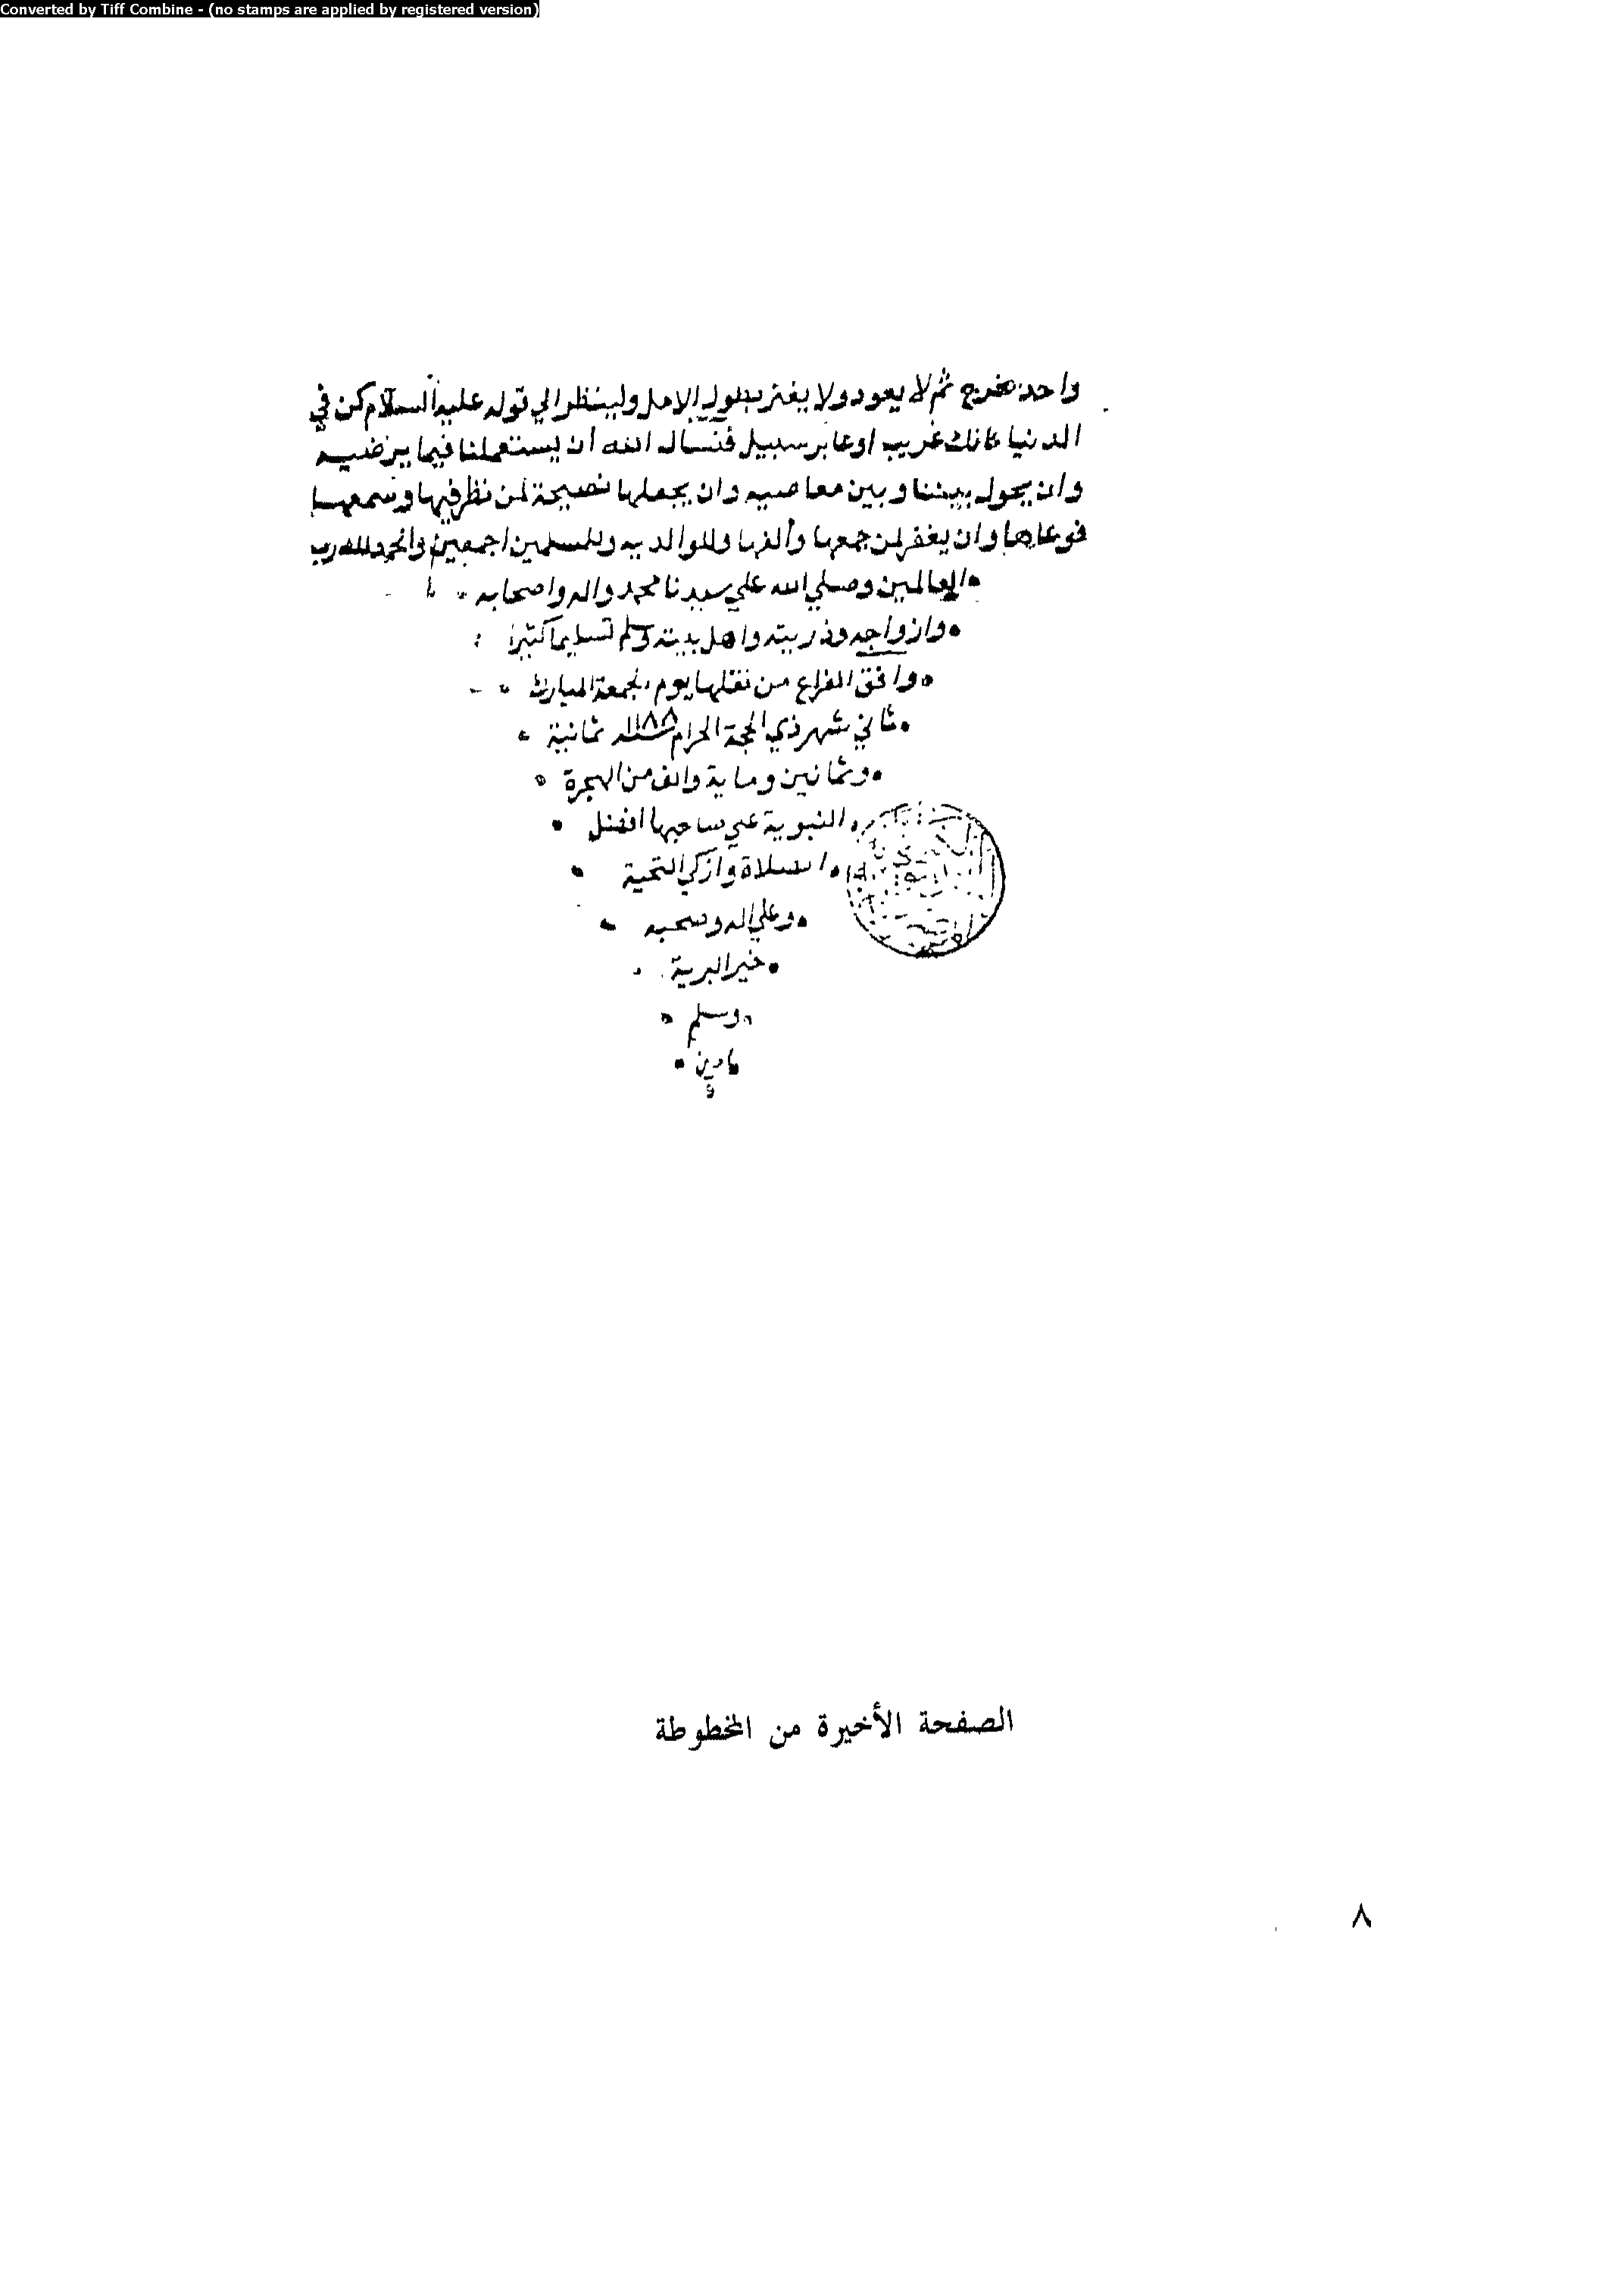 Converted by Tiff Combine - (no stamps are applied by registered version)
واحد مخرج ثم لا يعود ولا يغتر بطول الامل ولينظر الي قوله عليه السلام كن في
الدنيا كانك غريب او عابر سبيل فنسال الله ان يستعملنا فيما يرضيه
وان يحول بيننا وبين معاصيه وان يجعلها نصيحة لمن نظر فيها وسمعها
فوعاها وان يغفر لمن جمعها وألفها وللوالديه وللمسلمين اجمعين والحمد لله رب
العالمين وصلي الله علي سيدنا محمد واله واصحابه
وازواجه وذريته واهل بيته وسلم تسليما كثيرا
وافق الفراغ من نقلها يوم الجمعة المبارك
ثاني شهر ذي الحجة الحرام سنة ١١٨٨ ثمانية
وثمانين وماية والف من الهجرة
النبوية علي صاحبها افضل
الصلاة وازكي التحية
وعلي اله وصحبه
خير البرية
وسلم
امين
م
الصفحة الأخيرة من المخطوطة
٨